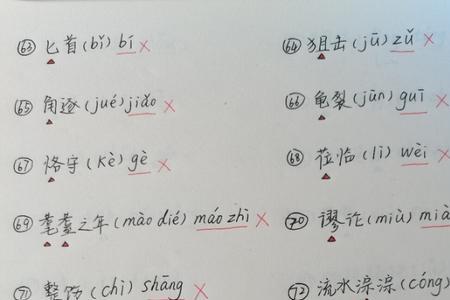 63 匕首(bǐ) bī × 64 狙击(jū) zǔ ×
65 角逐(jué) jiǎo × 66 龟裂(jūn) guī ×
67 恪守(kè) gè × 68 莅临(lì) wèi ×
69 耄耋之年(mào dié) máo zhì × 70 谬论(miù) mià
71 整饬(chì) shāng × 72 流水淙淙(cóng)